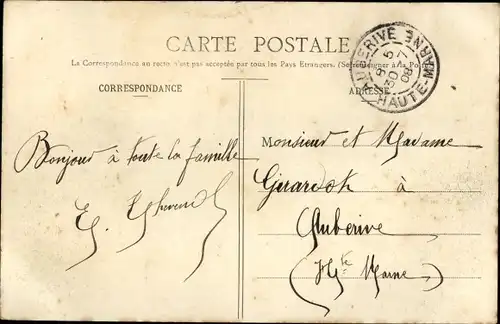 CARTE POSTALE
La Correspondance au recto n'est pas acceptée par tous les Pays Etrangers. (Se renseigner à la Poste)
CORRESPONDANCE
ADRESSE
AUBERIVE
HAUTE-MARNE
Bonjour à toute la famille
Monsieur et Madame
à
Auberive
(Hte Marne)